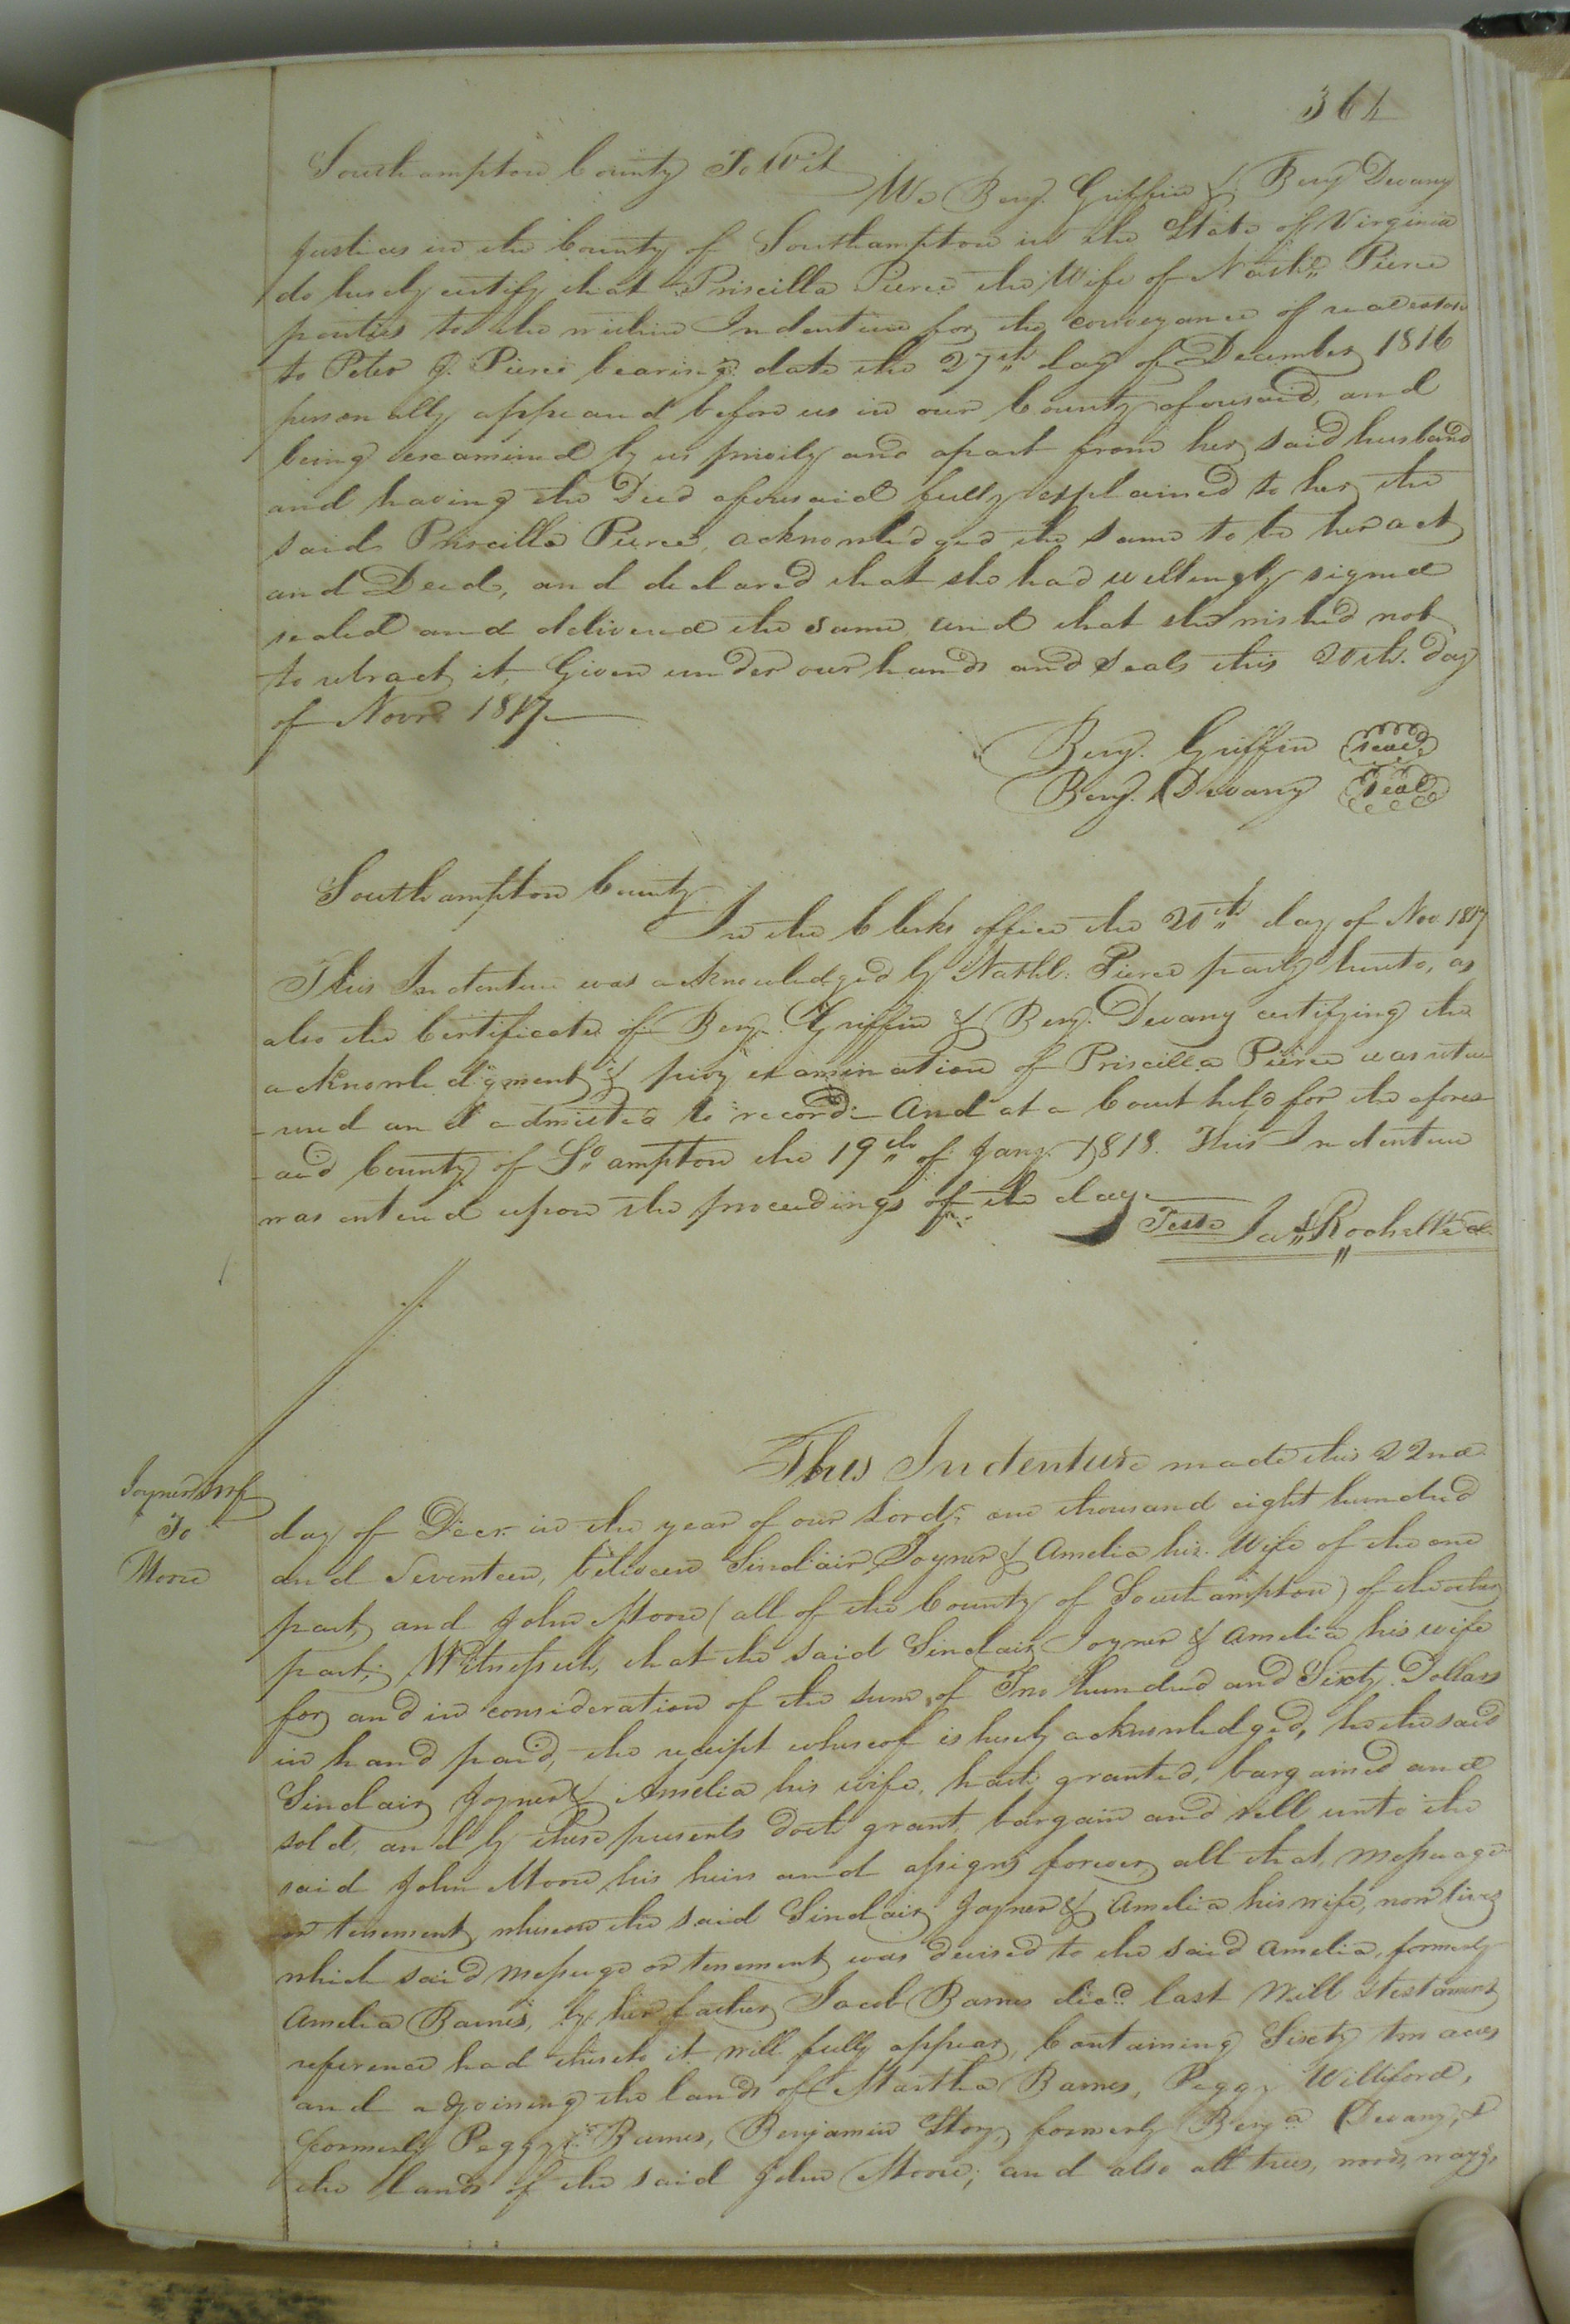 364
Southampton County To Wit
We Benj. Griffin & Benj Devany
Justices in the County of Southampton in the State of Virginia
do hereby certify that Priscilla Pierce the Wife of Nathl. Pierce
parties to the within Indenture for the conveyance of real estate
to Peter J. Pierce bearing date the 27th day of December 1816
personally appeared before us in our County aforesaid, and
being examined by us privily and apart from her said husband
and having the Deed aforesaid fully explained to her, the
said Priscilla Pierce, acknowledged the same to be her act
and Deed, and declared that she had willingly signed
sealed and delivered the same and that she wished not
to retract it, Given under our hands and seals this 20th. day
of Novr. 1817
Benj. Griffin seal
Benj. Devany seal
Southampton County
In the Clerks office the 20th day of Nov 1817
This Indenture was acknowledged by Nathl. Pierce party hereto, as
also the Certificate of Benj. Griffin & Benj. Devany certifying the
acknowledgment & privy examination of Priscilla Pierce was retur
-ned and admitted to record. And at a Court held for the afores
-aid County of So.ampton the 19th of Jany. 1818. This Indenture
was entered upon the proceedings of the day.
Teste Jas. Rochelle Cl.
This Indenture made this 22nd
Joyner & wf
To
Moore
day of Decr. in the year of our Lord, one thousand eight hundred
and Seventeen, between Sinclair Joyner & Amelia his Wife of the one
part, and John Moore (all of the County of Southampton) of the other
part; Witnesseth, that the said Sinclair Joyner & Amelia his wife
for and in consideration of the sum of Two hundred and Sixty Dollars
in hand paid, the receipt whereof is hereby acknowledged, he the said
Sinclair Joyner & Amelia his wife, hath granted, bargained and
sold, and by these presents doth grant, bargain and sell unto the
said John Moore his heirs and assigns forever, all that messuage
or tenement, whereon the said Sinclair Joyner & Amelia his wife, now lives
which said messuage or tenement was devised to the said Amelia, formerly
Amelia Barnes, by her father Jacob Barnes decd. last Will & testament
reference had thereto it will fully appear, Containing Sixty two acres
and adjoining the lands of Martha Barnes, Peggy Williford,
formerly Peggy Barnes, Benjamin Story formerly Benja Devany, &
the lands of the said John Moore; and also all trees, woods, ways,